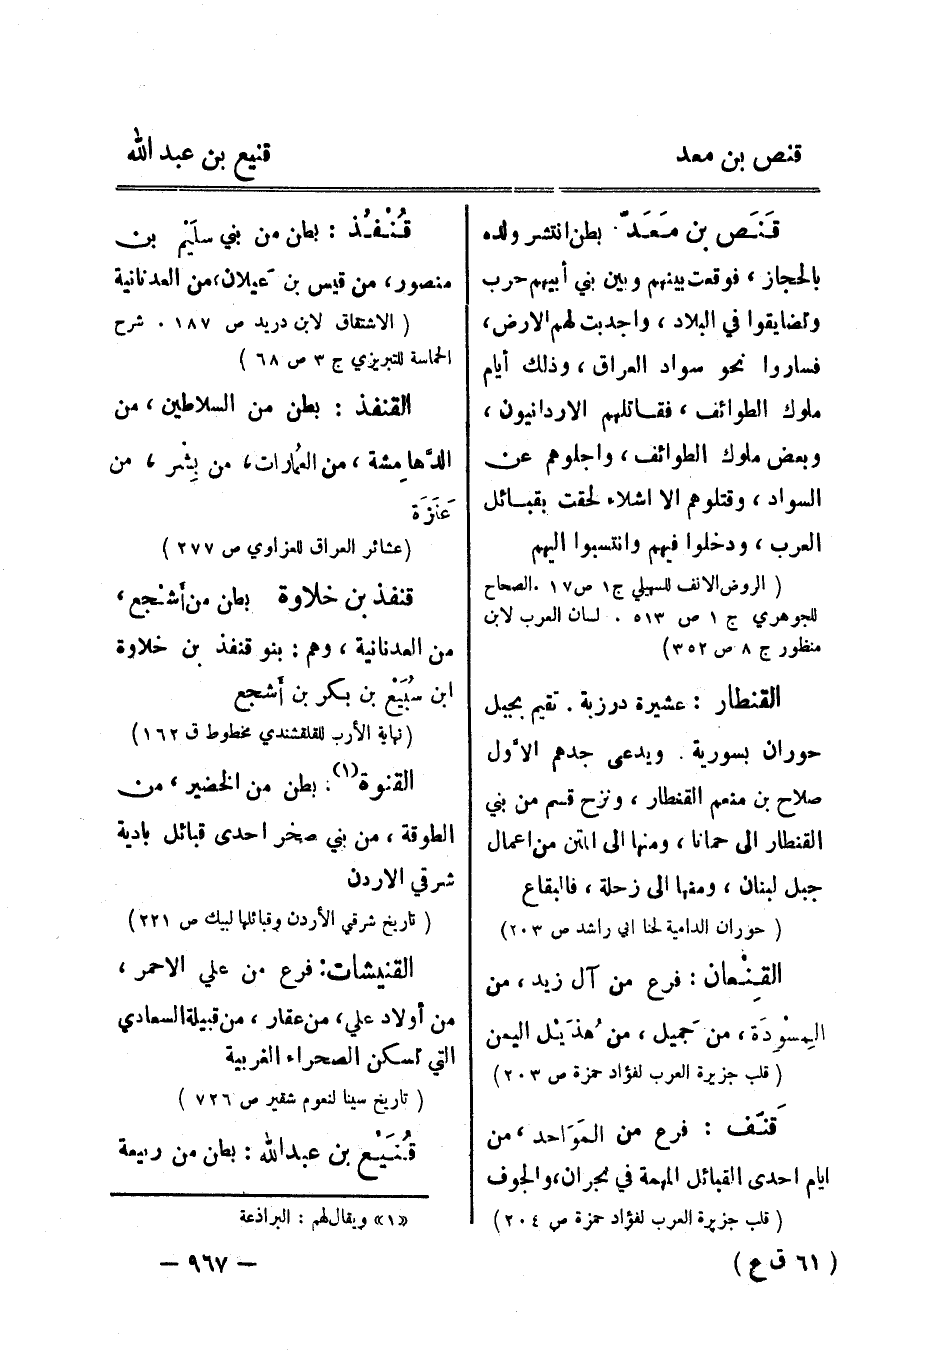 قنص بن معد
قنيع بن عبد الله
قَنَص بن مَعَدّ: بطن انتشر ولده
بالحجاز ، فوقعت بينهم وبين بني أبيهم حرب
وتضايقوا في البلاد ، واجدبت لهم الارض ،
فساروا نحو سواد العراق ، وذلك أيام
ملوك الطوائف ، فقاتلهم الاردانيون ،
وبعض ملوك الطوائف ، واجلوهم عن
السواد ، وقتلوهم الا اشلاء لحقت بقبائل
العرب ، ودخلوا فيهم وانتسبوا اليهم
( الروض الانف للسهيلي ج١ ص١٧ . الصحاح
للجوهري ج ١ ص ٥١٣ . لسان العرب لابن
منظور ج ٨ ص ٣٥٢)
القنطار : عشيرة درزية . تقيم بجبل
حوران بسورية . ويدعى جدهم الأول
صلاح بن منعم القنطار ، ونزح قسم من بني
القنطار الى حمانا ، ومنها الى المتن من اعمال
جبل لبنان ، ومنها الى زحلة ، فالبقاع
( حوران الدامية لحنا ابي راشد ص ٢٠٣)
القِنْعان : فرع من آل زيد ، من
المِسْوِدَة ، من جَميل ، من هُذَيْل اليمن
( قلب جزيرة العرب لفؤاد حمزة ص ٢٠٣)
قَنَّف : فرع من المَوَاحد ، من
ايام احدى القبائل المهمة في نجران ، والجوف
( قلب جزيرة العرب لفؤاد حمزة ص ٢٠٤)
( ٦١ ق ع )
قُنْفُذ : بطن من بني سلَيْم بن
منصور ، من قيس بن عَيلان ، من العدنانية
( الاشتقاق لابن دريد ص ١٨٧ . شرح
الحماسة للتبريزي ج ٣ ص ٦٨ )
القنفذ : بطن من السلاطين ، من
الدَّهامِشة ، من العمُارات ، من بِشْر ، من
عَنَزَة
(عشائر العراق للعزاوي ص ٢٧٧ )
قنفذ بن خلاوة بطن من أشْجع ،
من العدنانية ، وهم : بنو قنفذ بن خلاوة
ابن سُبَيْع بن بكر بن أشجع
(نهاية الأرب للقلقشندي مخطوط ق ١٦٢)
القنوة(١): بطن من الخضير ، من
الطوقة ، من بني صخر احدى قبائل بادية
شرقي الاردن
( تاريخ شرقي الأردن وقبائلها لبيك ص ٢٢١)
القنيشات: فرع من علي الاحمر ،
من أولاد علي ، من عقار ، من قبيلة السعادي
التي تسكن الصحراء الغربية
( تاريخ سينا لنعوم شقير ص ٧٢٦ )
قُنَيْع بن عبدالله : بطن من ربيعة
«١» ويقال لهم : البراذعة
– ٩٦٧ –